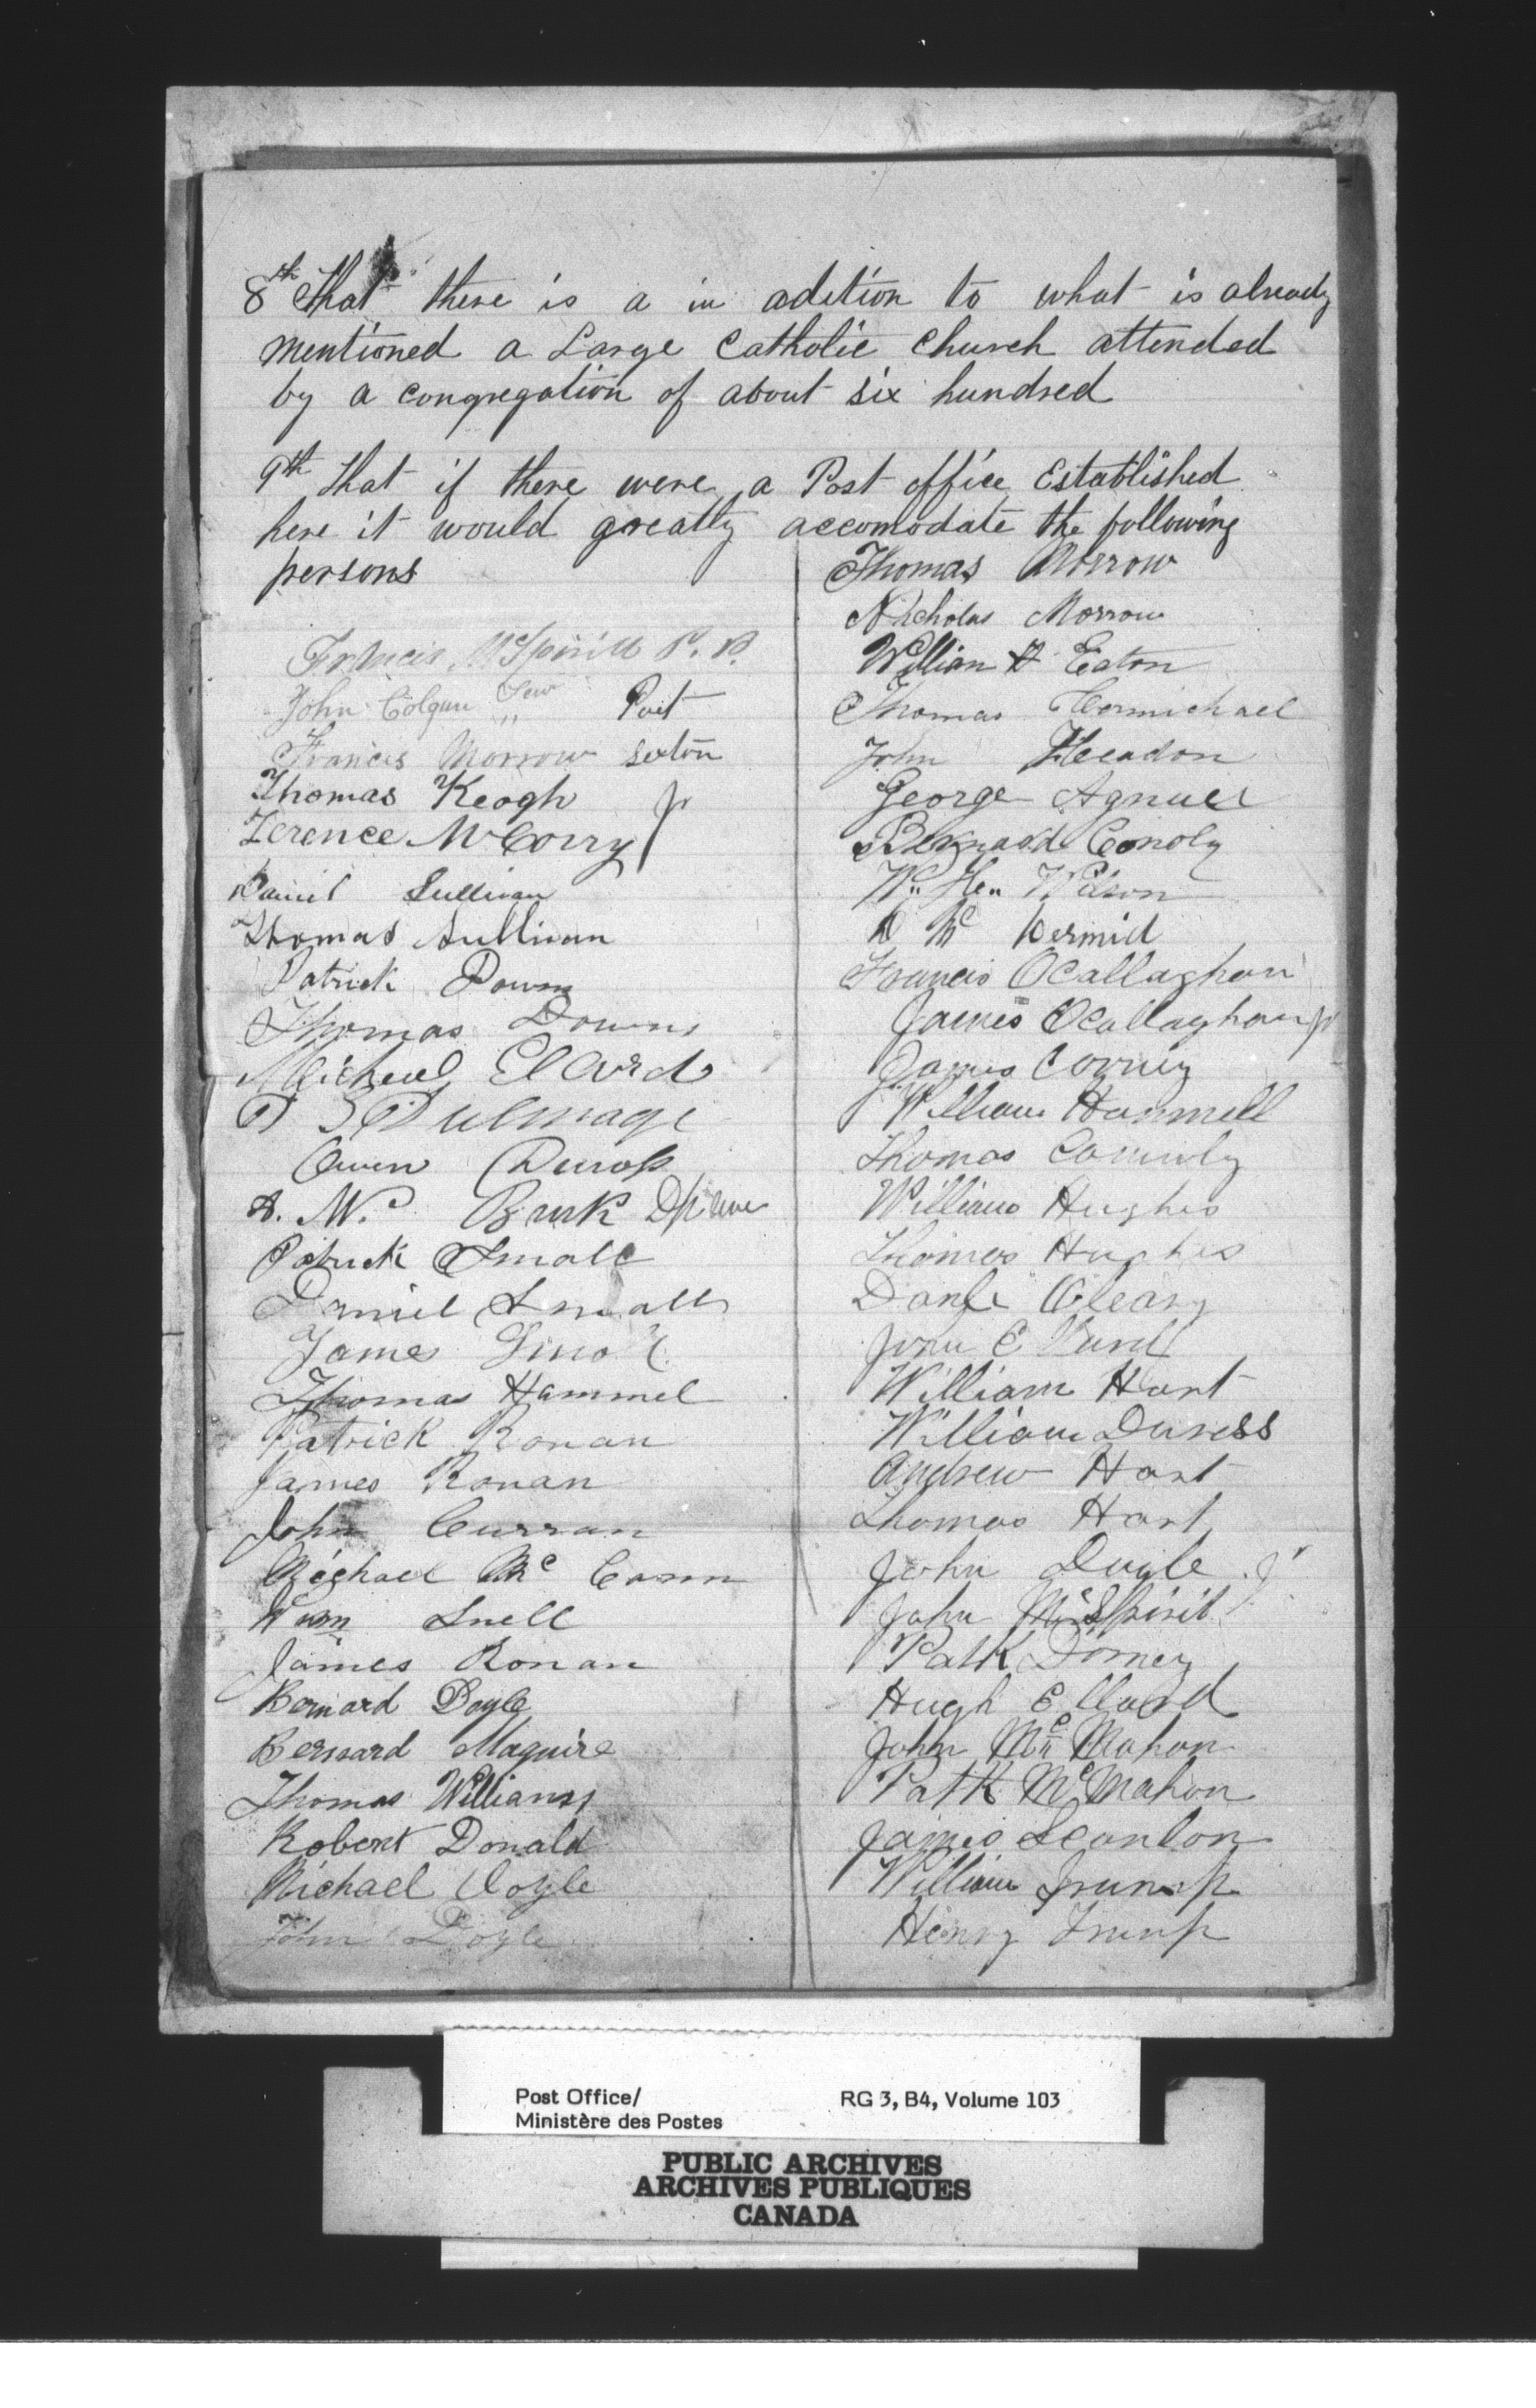 8th That there is a in adition to what is already
mentioned a Large Catholic Church attended
by a congregation of about six hundred
9th that if there were a Post office Established
here it would greatly accomodate the following
persons
Francis McSpiritt P. P.
John Colgan Sen
Francis Morrow sexton
Thomas Keogh Jr
Terence McCorry
Daniel Sullivan
Thomas Sullivan
Patrick Downs
Thomas Downs
Micheal Ellard
Owen
Patrick Small
Daniel Small
James
Thomas Hammel
Patrick Ronan
James Ronan
John Curran
Michael Mc Cann
Snell
James Ronan
Bernard Doyle
Bernard Maguire
Thomas Williams
Robert Donald
Michael Doyle
John Doyle
Thomas Morrow
Nicholas Morrow
William H Eaton
Thomas Cormichael
John Headon
George Agnuel
Bernard Conoly
Wm Hen Wilson
D Mc Dermitt
Francis OCallaghan
James OCallaghan jr
James Corrney
William Hammell
Thomas
William Hughes
Thomas Hughes
Danl OLeary
John
William Hart
William Duress
Andrew Hart
Thomas Hart
John Dugle Jr
John McSpirit
Patk Dorney
Hugh Ellard
John Mc Mahon
Patk McMahon
James Scanlon
William Trump
Henry Trump
Post Office/
Ministère des Postes
RG 3, B4, Volume 103
PUBLIC ARCHIVES
ARCHIVES PUBLIQUES
CANADA